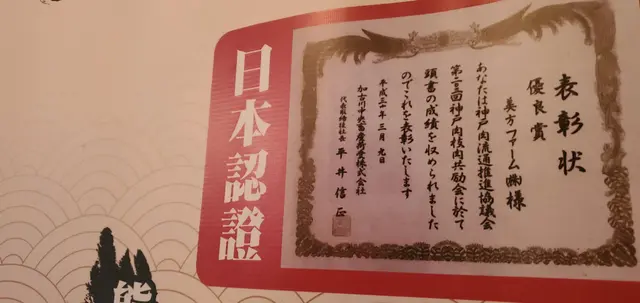 日本認證
表彰状
優良賞
美方ファーム㈱様
あなたは神戸肉流通推進協議会
第三回神戸肉枝肉共励会に於て
頭書の成績を収められました
のでこれを表彰いたします
平成三十年三月九日
加古川中央畜産荷受株式会社
代表取締役社長 平井信正
熊